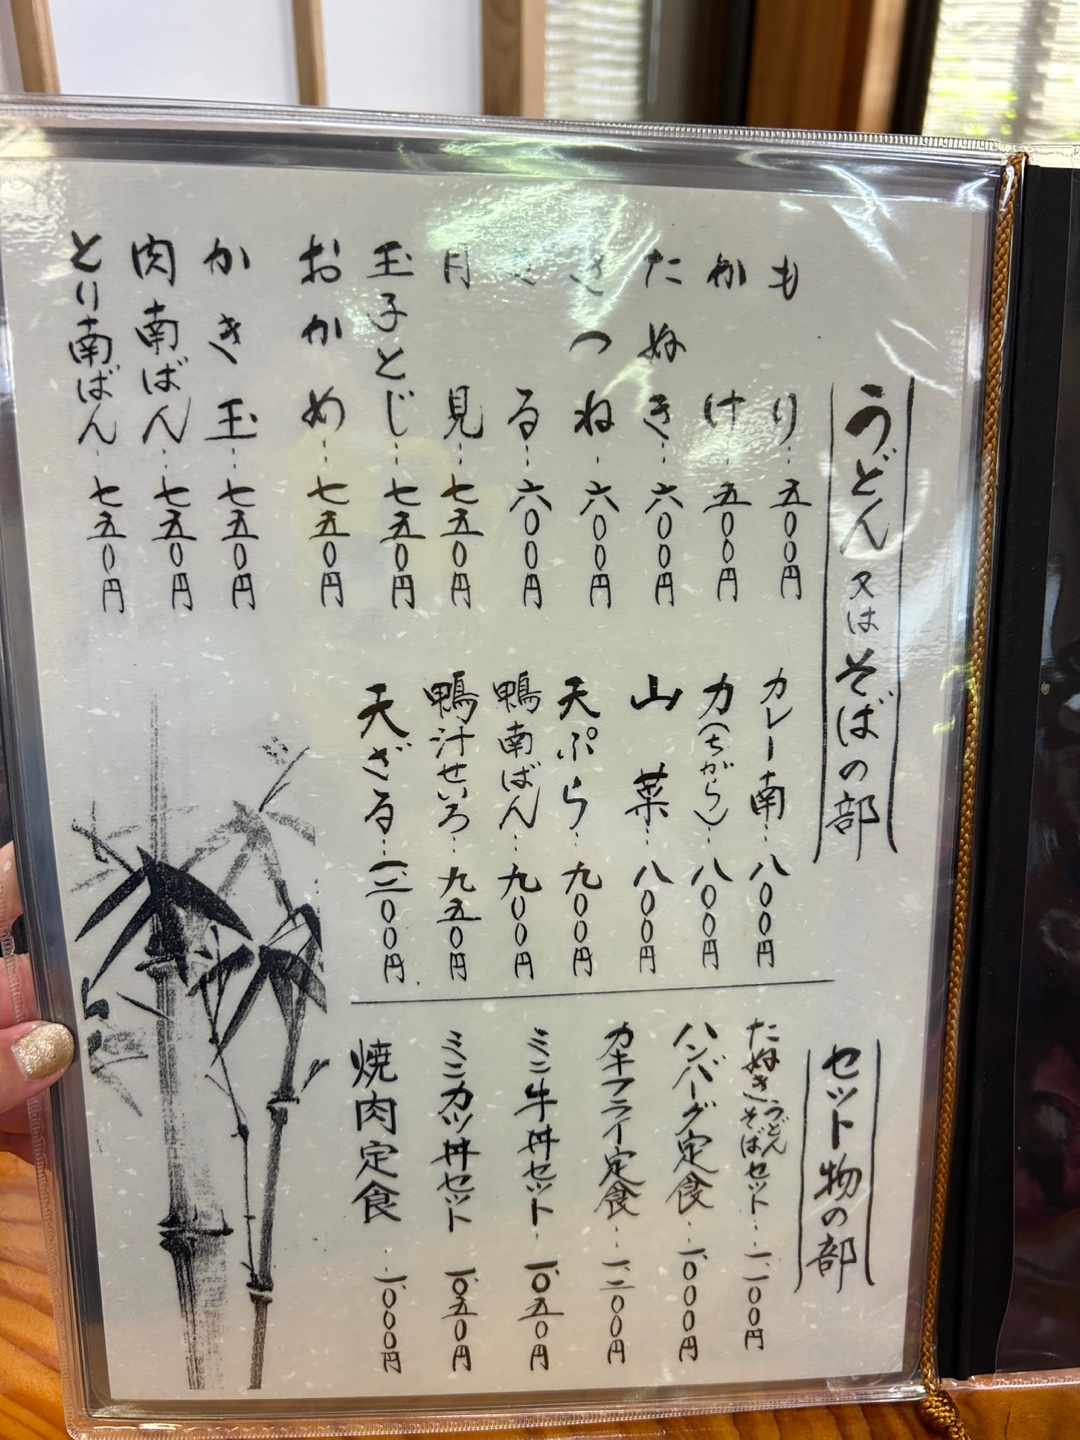 うどん又はそばの部
もり…五〇〇円
かけ…五〇〇円
たぬき…六〇〇円
きつね…六〇〇円
ざる…六〇〇円
月見…七五〇円
玉子とじ…七五〇円
おかめ…七五〇円
かき玉…七五〇円
肉南ばん…七五〇円
とり南ばん…七五〇円
カレー南…八〇〇円
力(ちがら)…八〇〇円
山菜…八〇〇円
天ぷら…九〇〇円
鴨南ばん…九〇〇円
鴨汁せいろ…九五〇円
天ざる…一、二〇〇円
セット物の部
たぬきうどんそばセット…一、一〇〇円
ハンバーグ定食…一、〇〇〇円
カキフライ定食…一、二〇〇円
ミニ牛丼セット…一、〇五〇円
ミニカツ丼セット…一、〇五〇円
焼肉定食…一、〇〇〇円